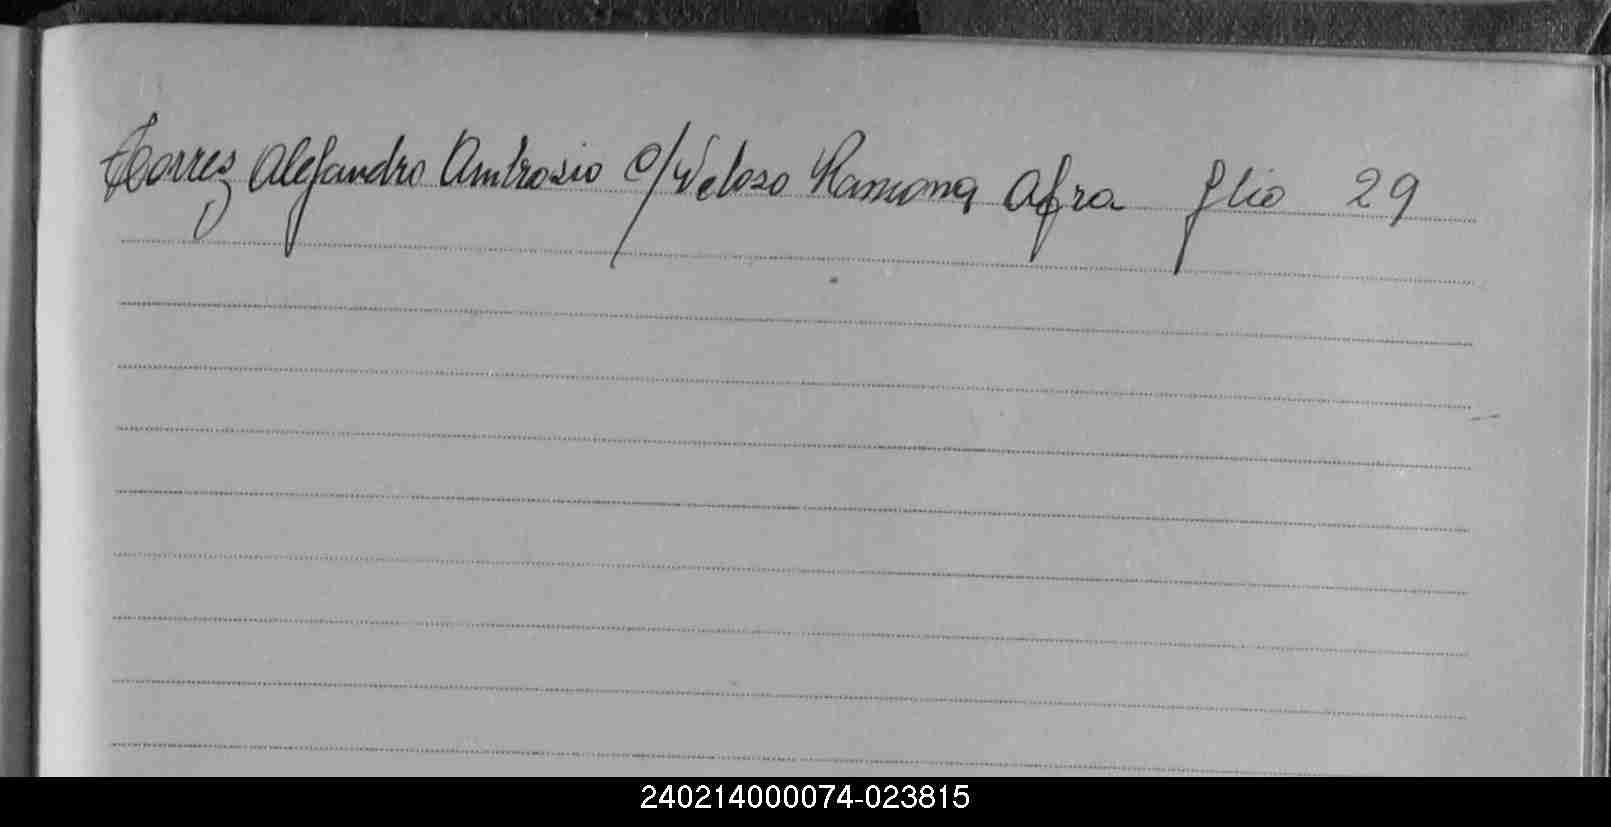 Torrez Alejandro Ambrosio c/Veloso Ramona Afra flio 29
240214000074-023815